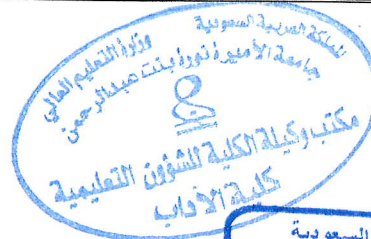 المملكة العربية السعودية
وزارة التعليم العالي
جامعة الأميرة نورة بنت عبدالرحمن
مكتب وكيلة الكلية للشؤون التعليمية
كلية الآداب
السعودية